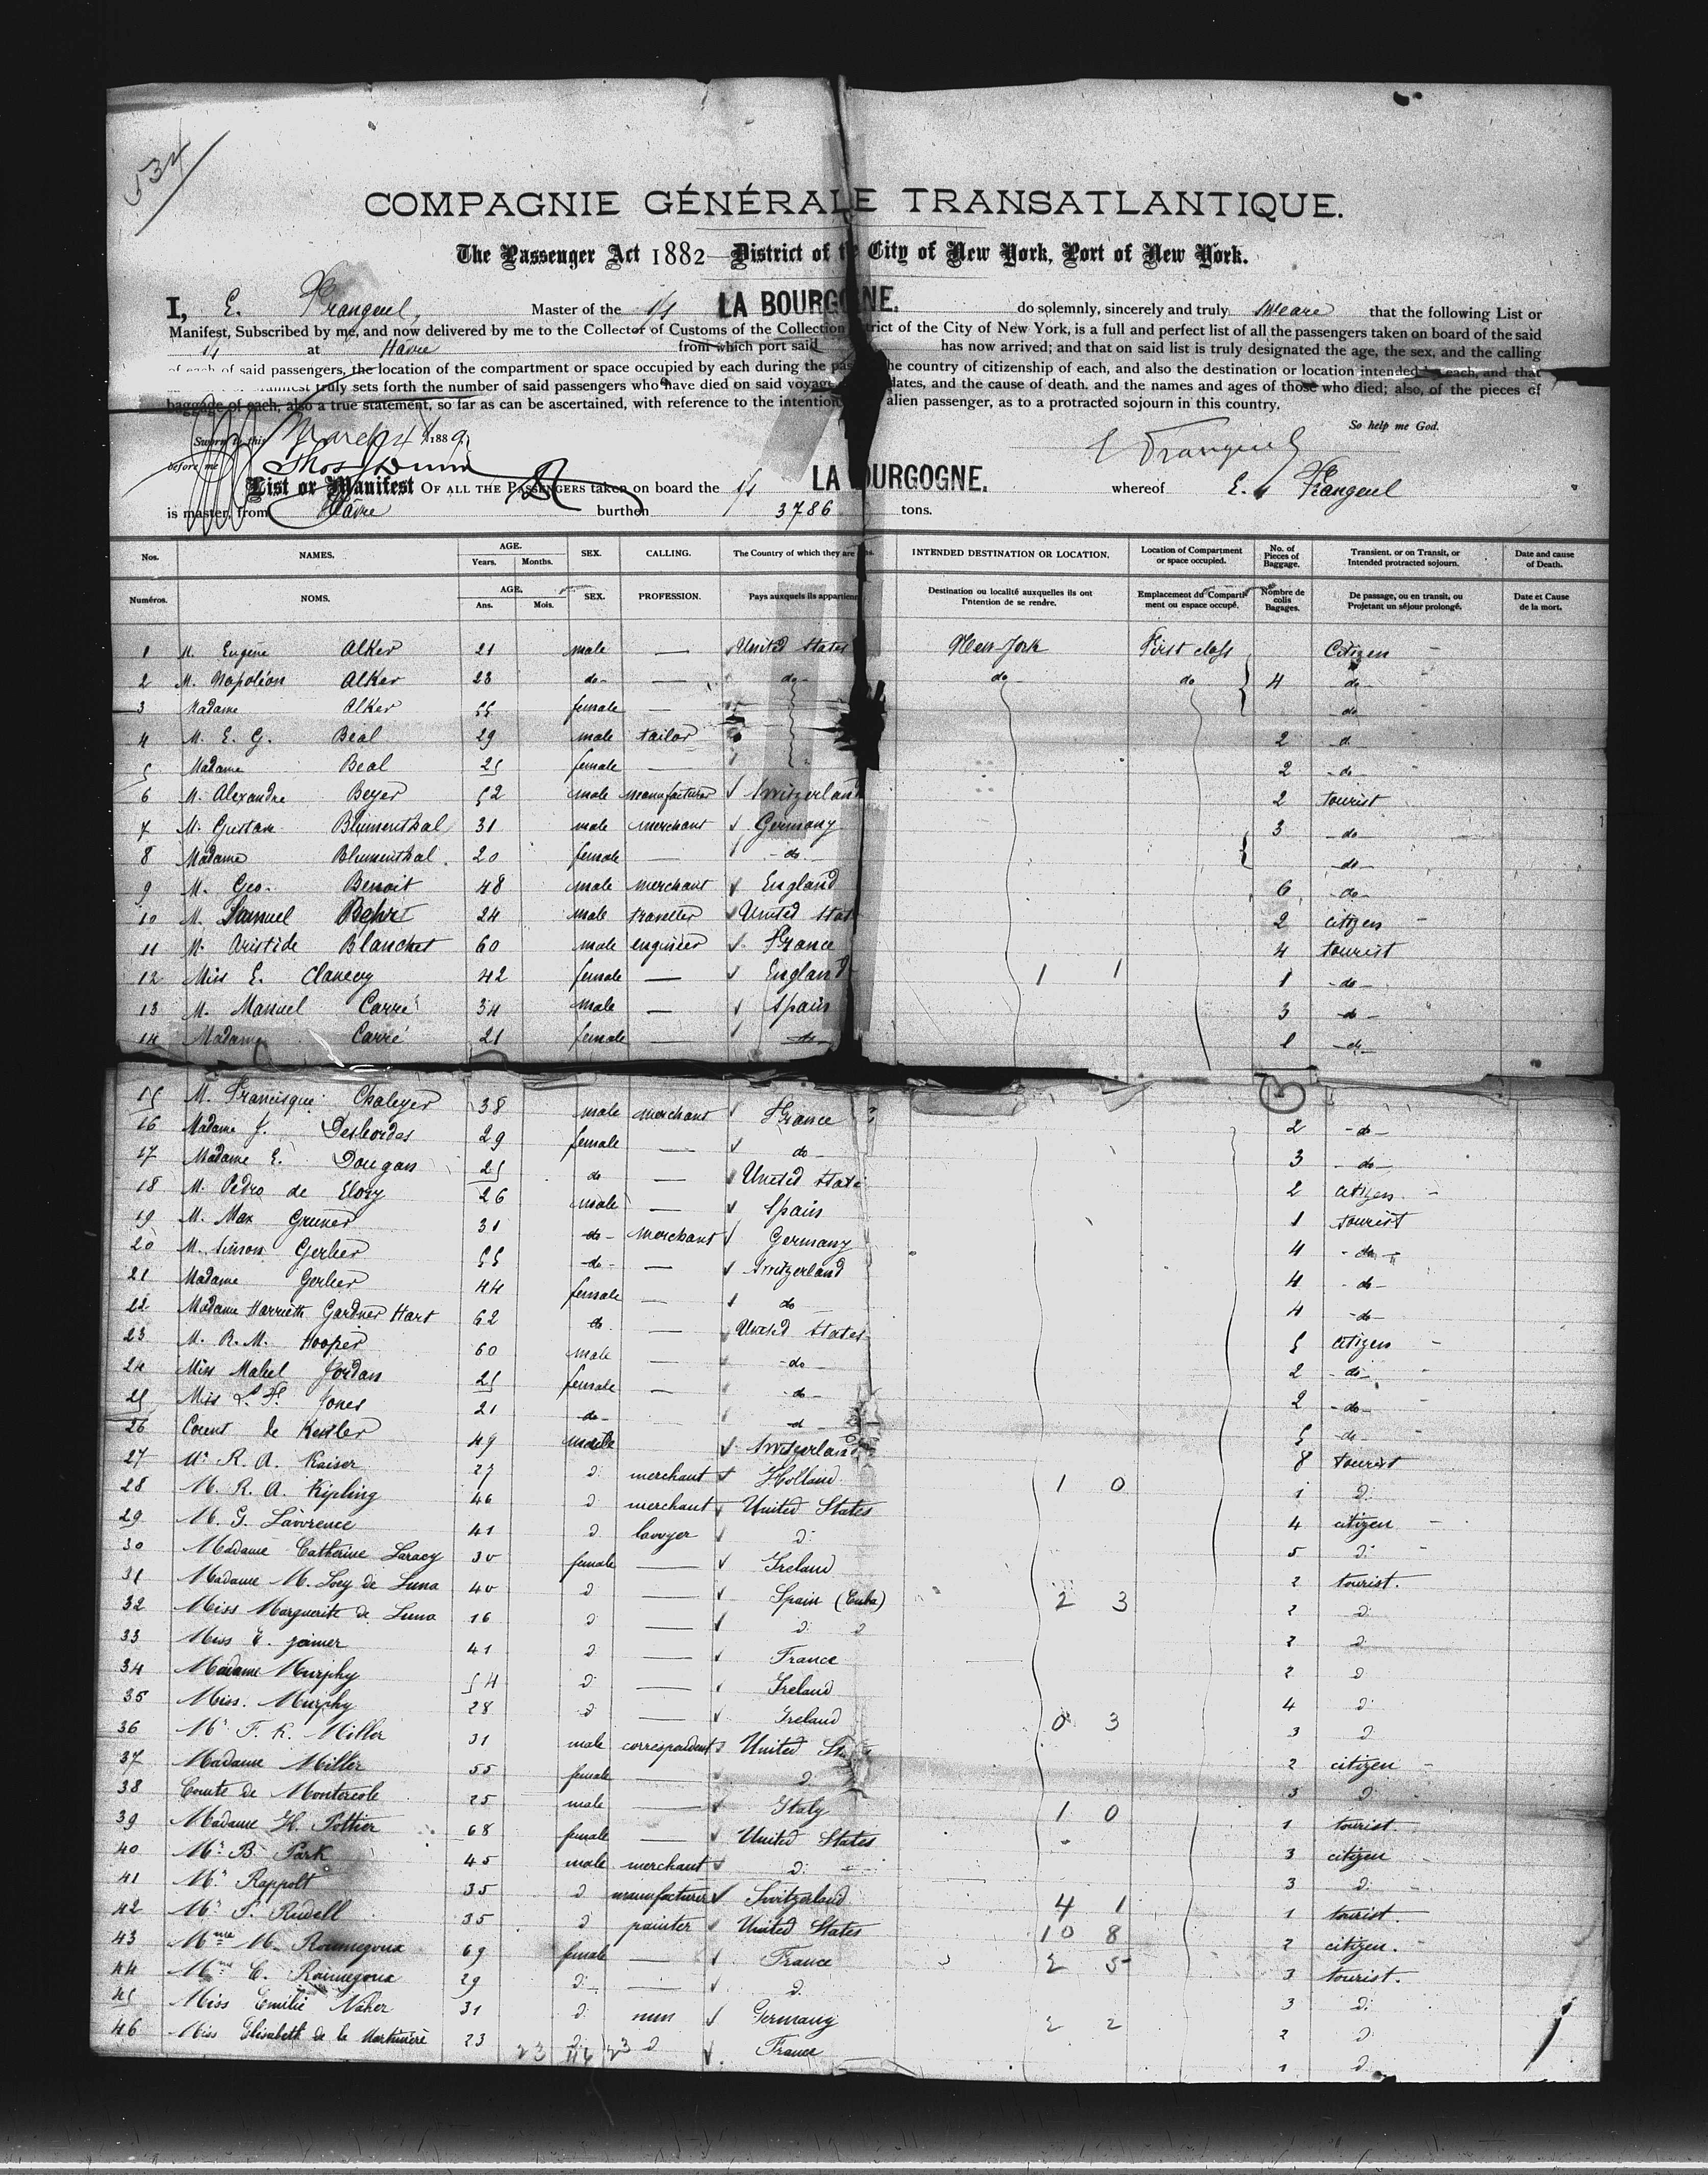 534
COMPAGNIE GÉNÉRALE TRANSATLANTIQUE.
The Passenger Act 1882 District of the City of New York, Port of New York.
I, E. Frangeul, Master of the s/s LA BOURGOGNE. do solemnly, sincerely and truly swear that the following List or
Manifest, Subscribed by me, and now delivered by me to the Collector of Customs of the Collection District of the City of New York, is a full and perfect list of all the passengers taken on board of the said
s/s at Havre from which port said has now arrived; and that on said list is truly designated the age, the sex, and the calling
of each of said passengers, the location of the compartment or space occupied by each during the the country of citizenship of each, and also the destination or location intended each, and that
truly sets forth the number of said passengers who have died on said voyage dates, and the cause of death. and the names and ages of those who died; also, of the pieces of
baggage of each, also a true statement, so far as can be ascertained, with reference to the intention alien passenger, as to a protracted sojourn in this country,
So help me God.
Sworn to this March 4 1889 E Frangeul
before me Thos Dunn
List or Manifest OF ALL THE PASSENGERS taken on board the s/s LA BOURGOGNE. whereof E. Frangeul
is master, from Havre burthen 3786 tons.
Nos. NAMES. AGE. Years. Months. SEX. CALLING. The Country of which they are INTENDED DESTINATION OR LOCATION. Location of Compartment or space occupied. No. of Pieces of Baggage. Transient, or on Transit, or Intended protracted sojourn. Date and cause of Death.
Numéros. NOMS. AGE. Ans. Mois. SEX. PROFESSION. Pays auxquels ils appartiennent Destination ou localité auxquelles ils ont l'intention de se rendre. Emplacement du Compartiment ou espace occupé. Nombre de colis Bagages. De passage, ou en transit, ou Projetant un séjour prolongé. Date et Cause de la mort.
1 M. Eugène Alker 21 male — United States New-York First class Citizen
2 M. Napoléon Alker 23 do — do do do 4 do
3 Madame Alker 55 female — do
4 M. E. G. Beal 29 male tailor 2 d
5 Madame Beal 25 female — 2 do
6 M. Alexandre Beyer 52 male manufacturer Switzerland 2 tourist
7 M. Gustave Blumenthal 31 male merchant Germany 3 do
8 Madame Blumenthal 20 female — do do
9 M. Geo. Benoit 48 male merchant England 6 do
10 M. Samuel Behr 24 male traveller United Stat 2 citizen
11 M. Aristide Blanchet 60 male engineer France 4 tourist
12 Miss E. Clancey 42 female — England 1 1 1 do
13 M. Manuel Carré 34 male — Spain 3 do
14 Madame Carré 21 female — do 1 do
15 M. Francisque Chaleyer 38 male merchant France 2 do
16 Madame J. Desbordes 29 female — do 3 do
17 Madame E. Dougan 25 do — United State 2 citizen
18 M. Pedro de Elozy 26 male — Spain 1 tourist
19 M. Max Gruner 31 do merchant Germany 4 do
20 M. Simon Gerber 55 do — Switzerland 4 do
21 Madame Gerber 44 female — do 4 do
22 Madame Harrieth Gardner Hart 62 do — United States 5 citizen
23 M. R. M. Hooper 60 male — do 2 do
24 Miss Mabel Jordan 25 female — do 2 do
25 Miss L. F. Jones 21 do — d 5 do
26 Count de Kessler 49 male Switzerland 8 tourist
27 Mr R. A. Kaiser 27 d merchant Holland 1 0 1 d
28 M. R. A. Kipling 46 d merchant United States 4 citizen
29 M. G. Lawrence 41 d lawyer d 5 d
30 Madame Catherine Laracy 30 female — Ireland 2 tourist.
31 Madame M. Socy de Luna 40 d — Spain (Cuba) 2 3 2 d
32 Miss Marguerite de Luna 16 d — d d 2 d
33 Miss E. Joiner 41 d — France 2 d
34 Madame Murphy 54 d — Ireland 4 d
35 Miss. Murphy 28 d — Ireland 0 3 3 d
36 Mr F. K. Miller 31 male correspondent United St 2 citizen
37 Madame Miller 55 female — d 3 d
38 Comte de Montercole 25 male — Italy 1 0 1 tourist.
39 Madame H. Pottier 68 female — United States 3 citizen
40 Mr B Park 45 male merchant d 3 d
41 Mr Rappolt 35 d manufacturer Switzerland 4 1 1 tourist.
42 Mr P. Rudell 35 d painter United States 10 8 2 citizen.
43 Mme M. Roumegoux 69 female — France 2 5 3 tourist.
44 Mme C. Roumegoux 29 d — d 3 d
45 Miss Emilie Naher 31 d nun Germany 2 2 2 d
46 Miss Elisabeth de la Martinière 23 d d France 1 d
23 46 23